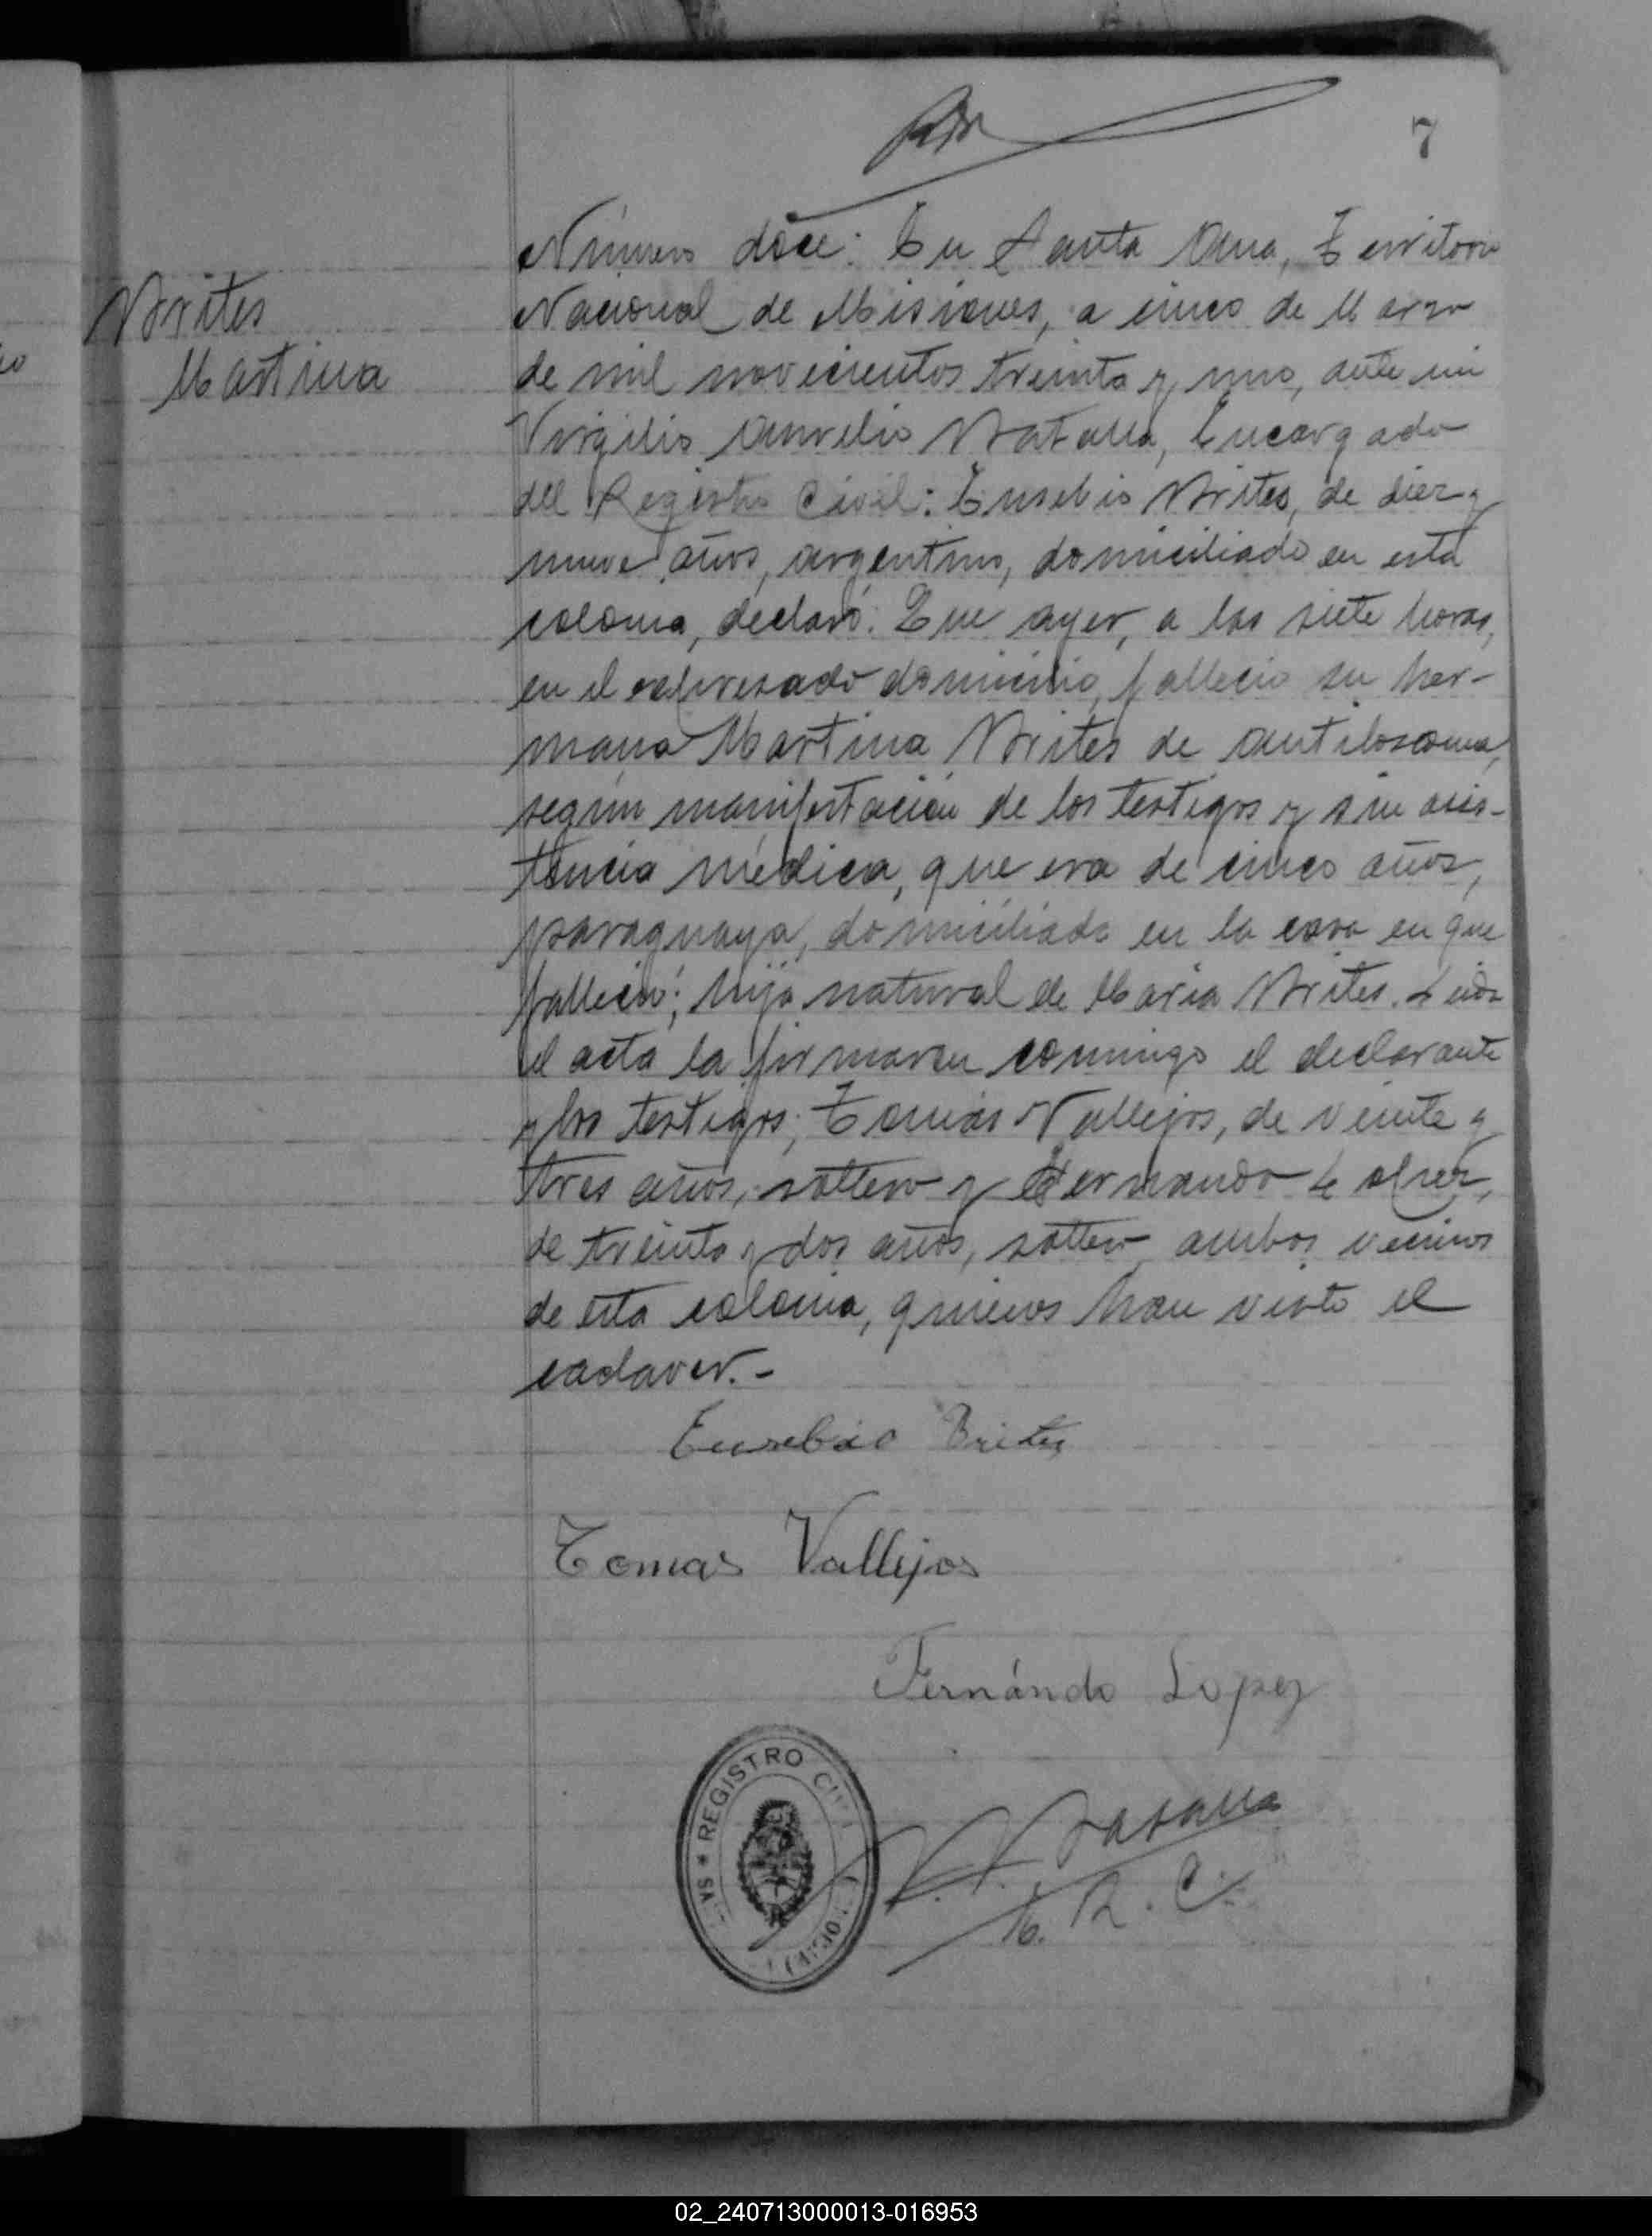 7
Brites
Martina
Número doce: En Santa Ana, Territorio
Nacional de Misiones, a cinco de Marzo
de mil novecientos treinta y uno, ante mi
Virgilio Aurelio Batalla, Encargado
del Registro Civil: Eusebio Brites, de diez y
nueve años, argentino, domiciliado en esta
colonia, declaró: Que ayer, a las siete horas,
en el expresado domicilio, fallecio su her-
mana Martina Brites de
según manifestación de los testigos y sin asis-
tencia médica, que era de cinco años,
paraguaya, domiciliada en la casa en que
falleció; hija natural de Maria Brites. Leida
el acta la firmaron conmigo el declarante
y los testigos; Tomás Vallejos, de veinte y
tres años, soltero y Fernando Lopez,
de treinta y dos años, soltero ambos vecinos
de esta colonia, quienes han visto el
cadaver.-
Eusebio Brites
Tomas Vallejos
Fernándo Lopez
REGISTRO CIVIL
E. R. C.
02_240713000013-016953